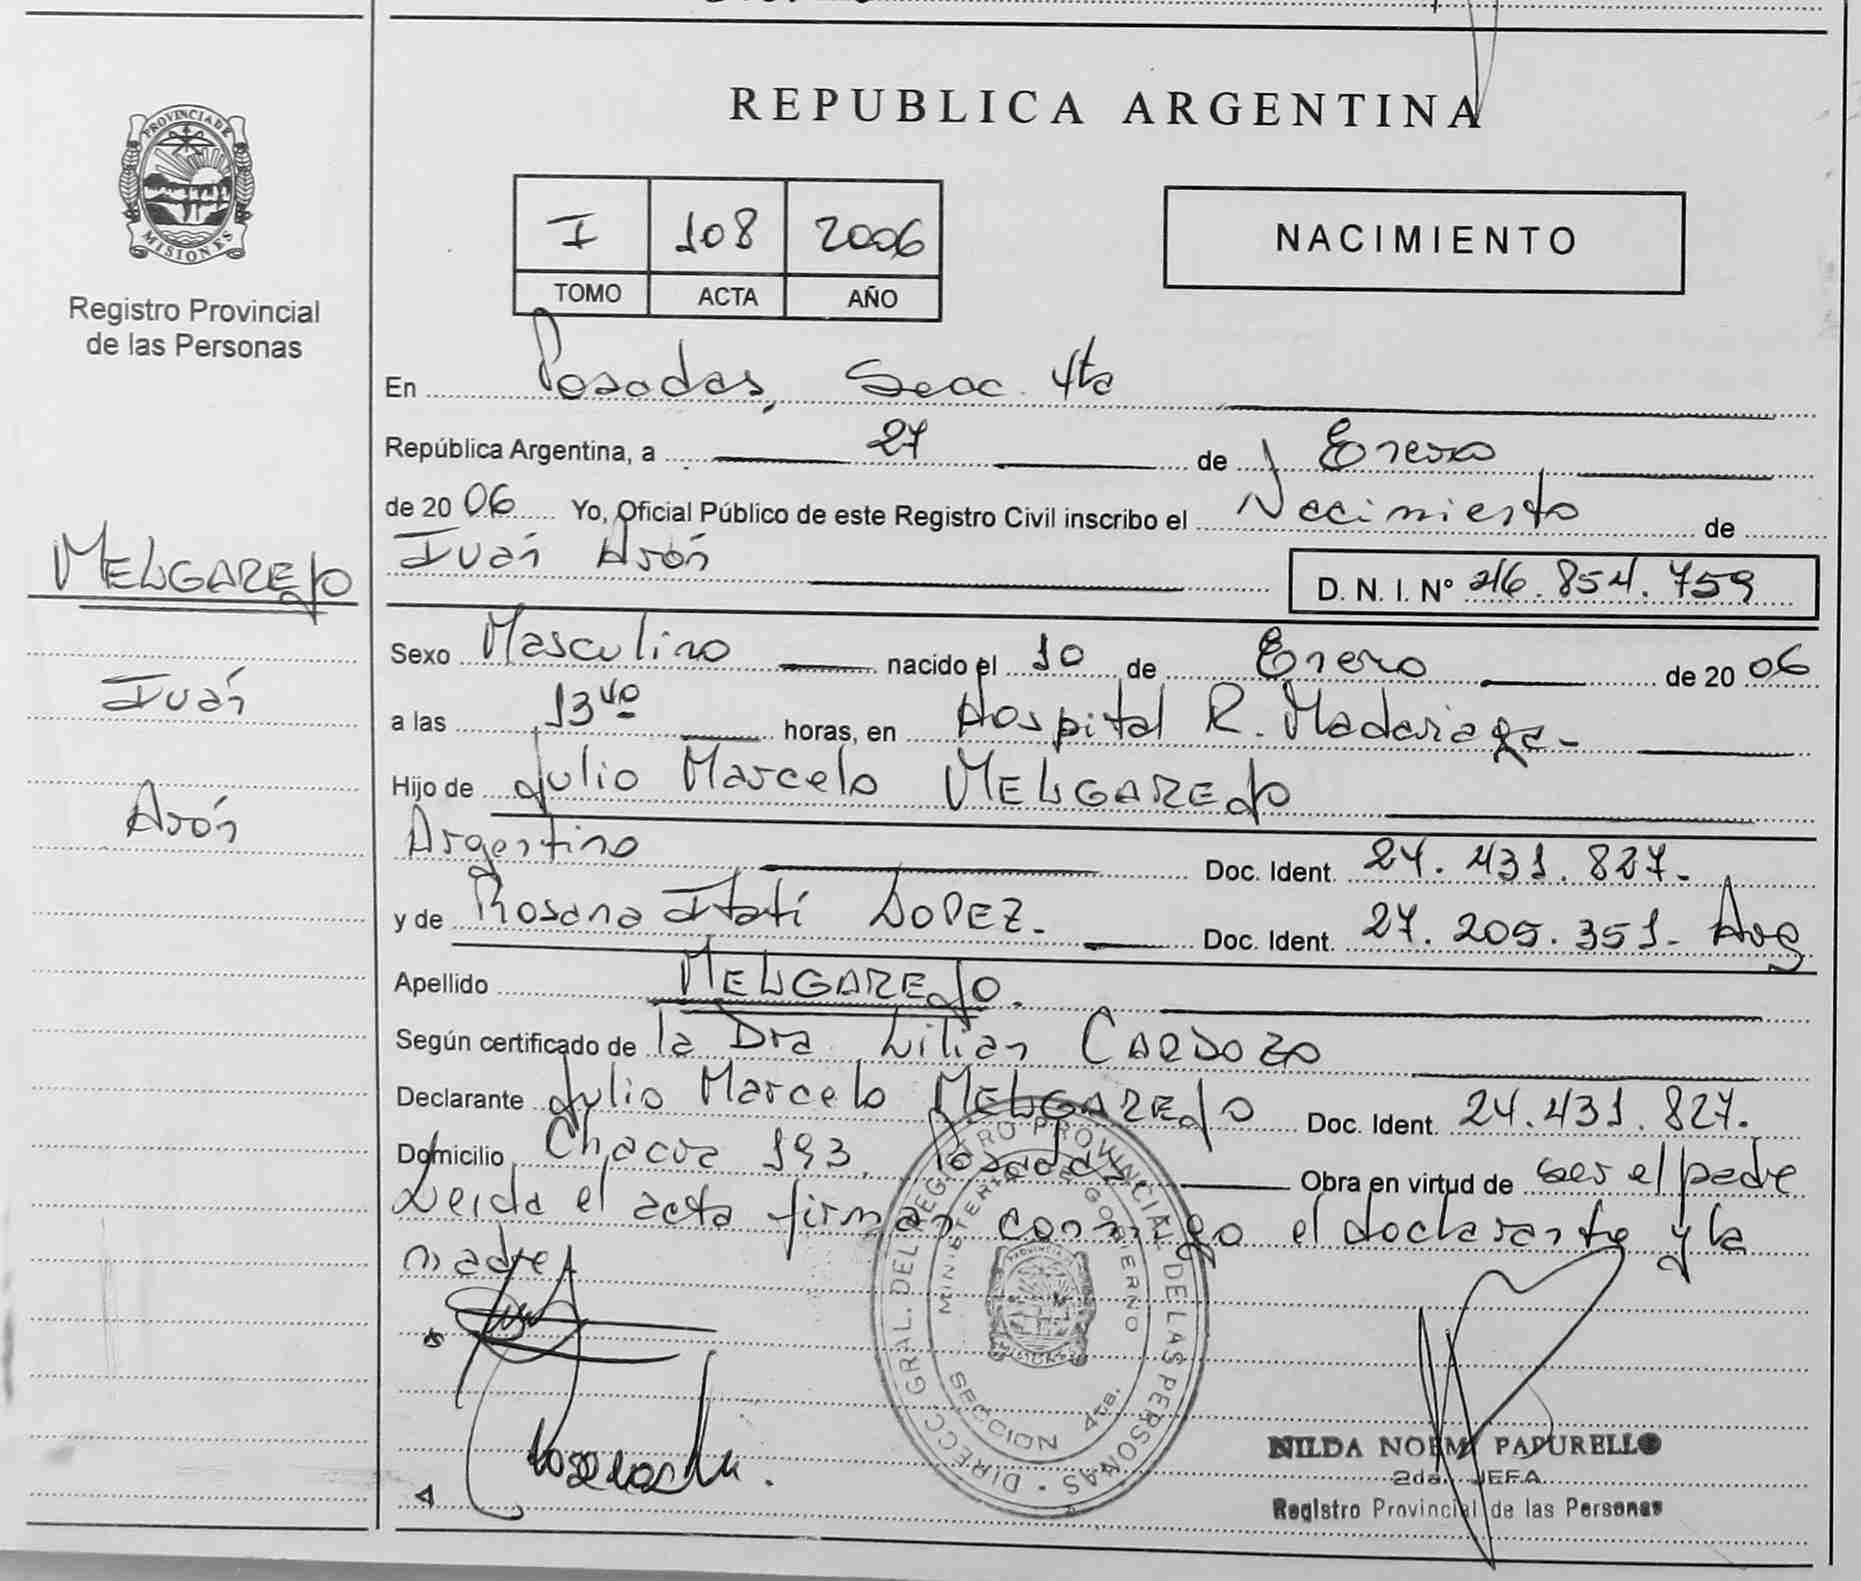 REPUBLICA ARGENTINA
PROVINCIA DE
MISIONES
Registro Provincial
de las Personas
I 108 2006
TOMO ACTA AÑO
NACIMIENTO
En Posadas, Secc. 4ta
República Argentina, a 27 de Enero
de 20 06 Yo, Oficial Público de este Registro Civil inscribo el Nacimiento de
Iván Arón
D. N. I. Nº 46.854.759
MELGAREJO
Iván
Arón
Sexo Masculino nacido el 10 de Enero de 20 06
a las 13 horas, en Hospital R. Madariaga-
Hijo de Julio Marcelo MELGAREJO
Argentino Doc. Ident. 24.431.827-
y de Rosana Itatí LOPEZ- Doc. Ident. 27.205.351- Arg
Apellido MELGAREJO.
Según certificado de la Dra Lilian CARDOZO
Declarante Julio Marcelo MELGAREJO Doc. Ident. 24.431.827.
Domicilio Chacra 193. Posadas Obra en virtud de ser el padre
Leida el acta firman conmigo el declarante y la
madre
DIRECC. GRAL. DEL REGISTRO PROVINCIAL DE LAS PERSONAS
MINISTERIO DE GOBIERNO
PROVINCIA DE
MISIONES
SECCION 4ta.
NILDA NOEMI PAPURELLO
2da. JEFA
Registro Provincial de las Personas